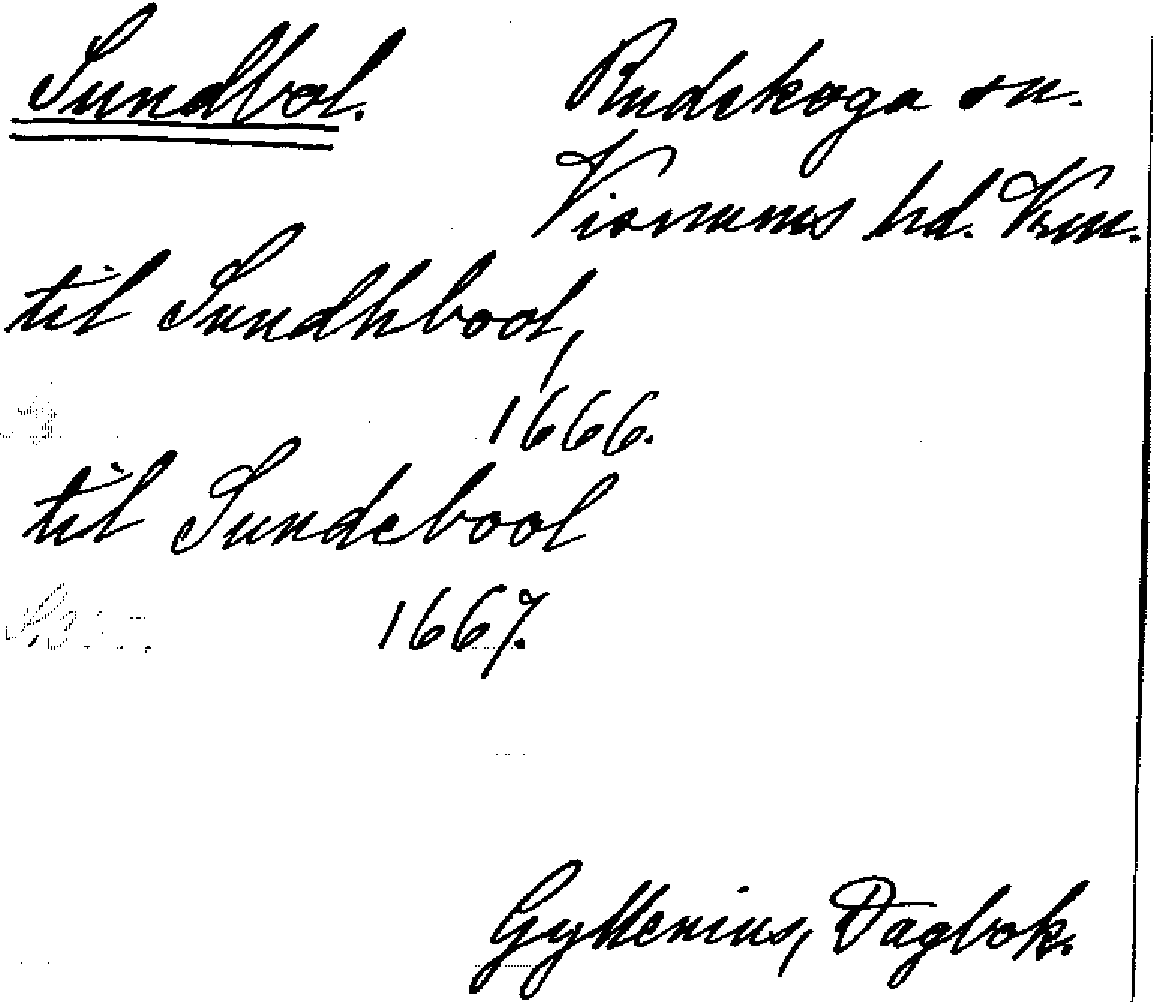 Sundbol.
Rudskoga sn.
Visnums hd. Vrm.
til Sundhbool,
1666.
til Sundebool
1667.
Gyllenius, Dagbok.